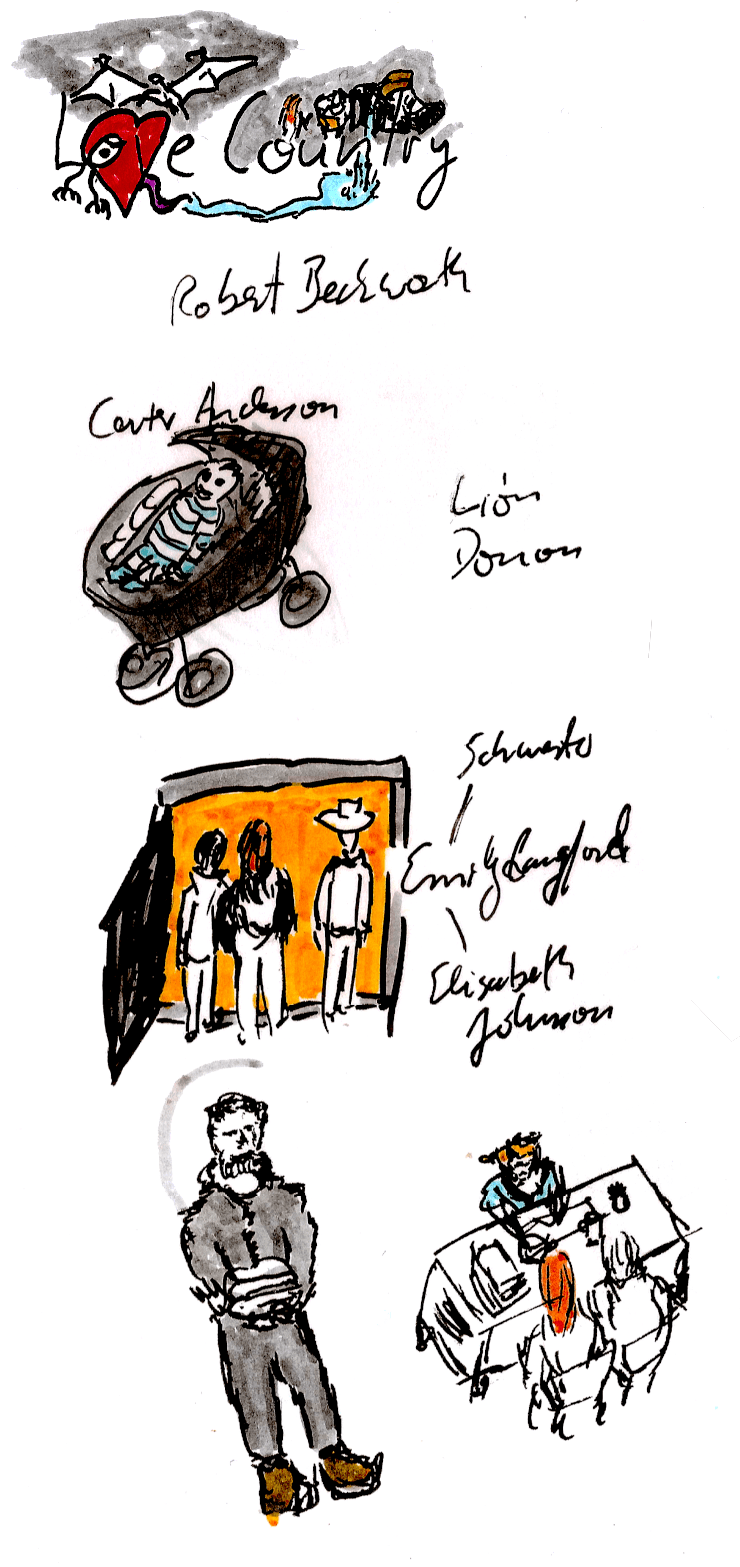 Love Country
Robert Beckwath
Carter Anderson
Lión
Donon
Schwester
Emily Langford
Elisabeth
Johnson